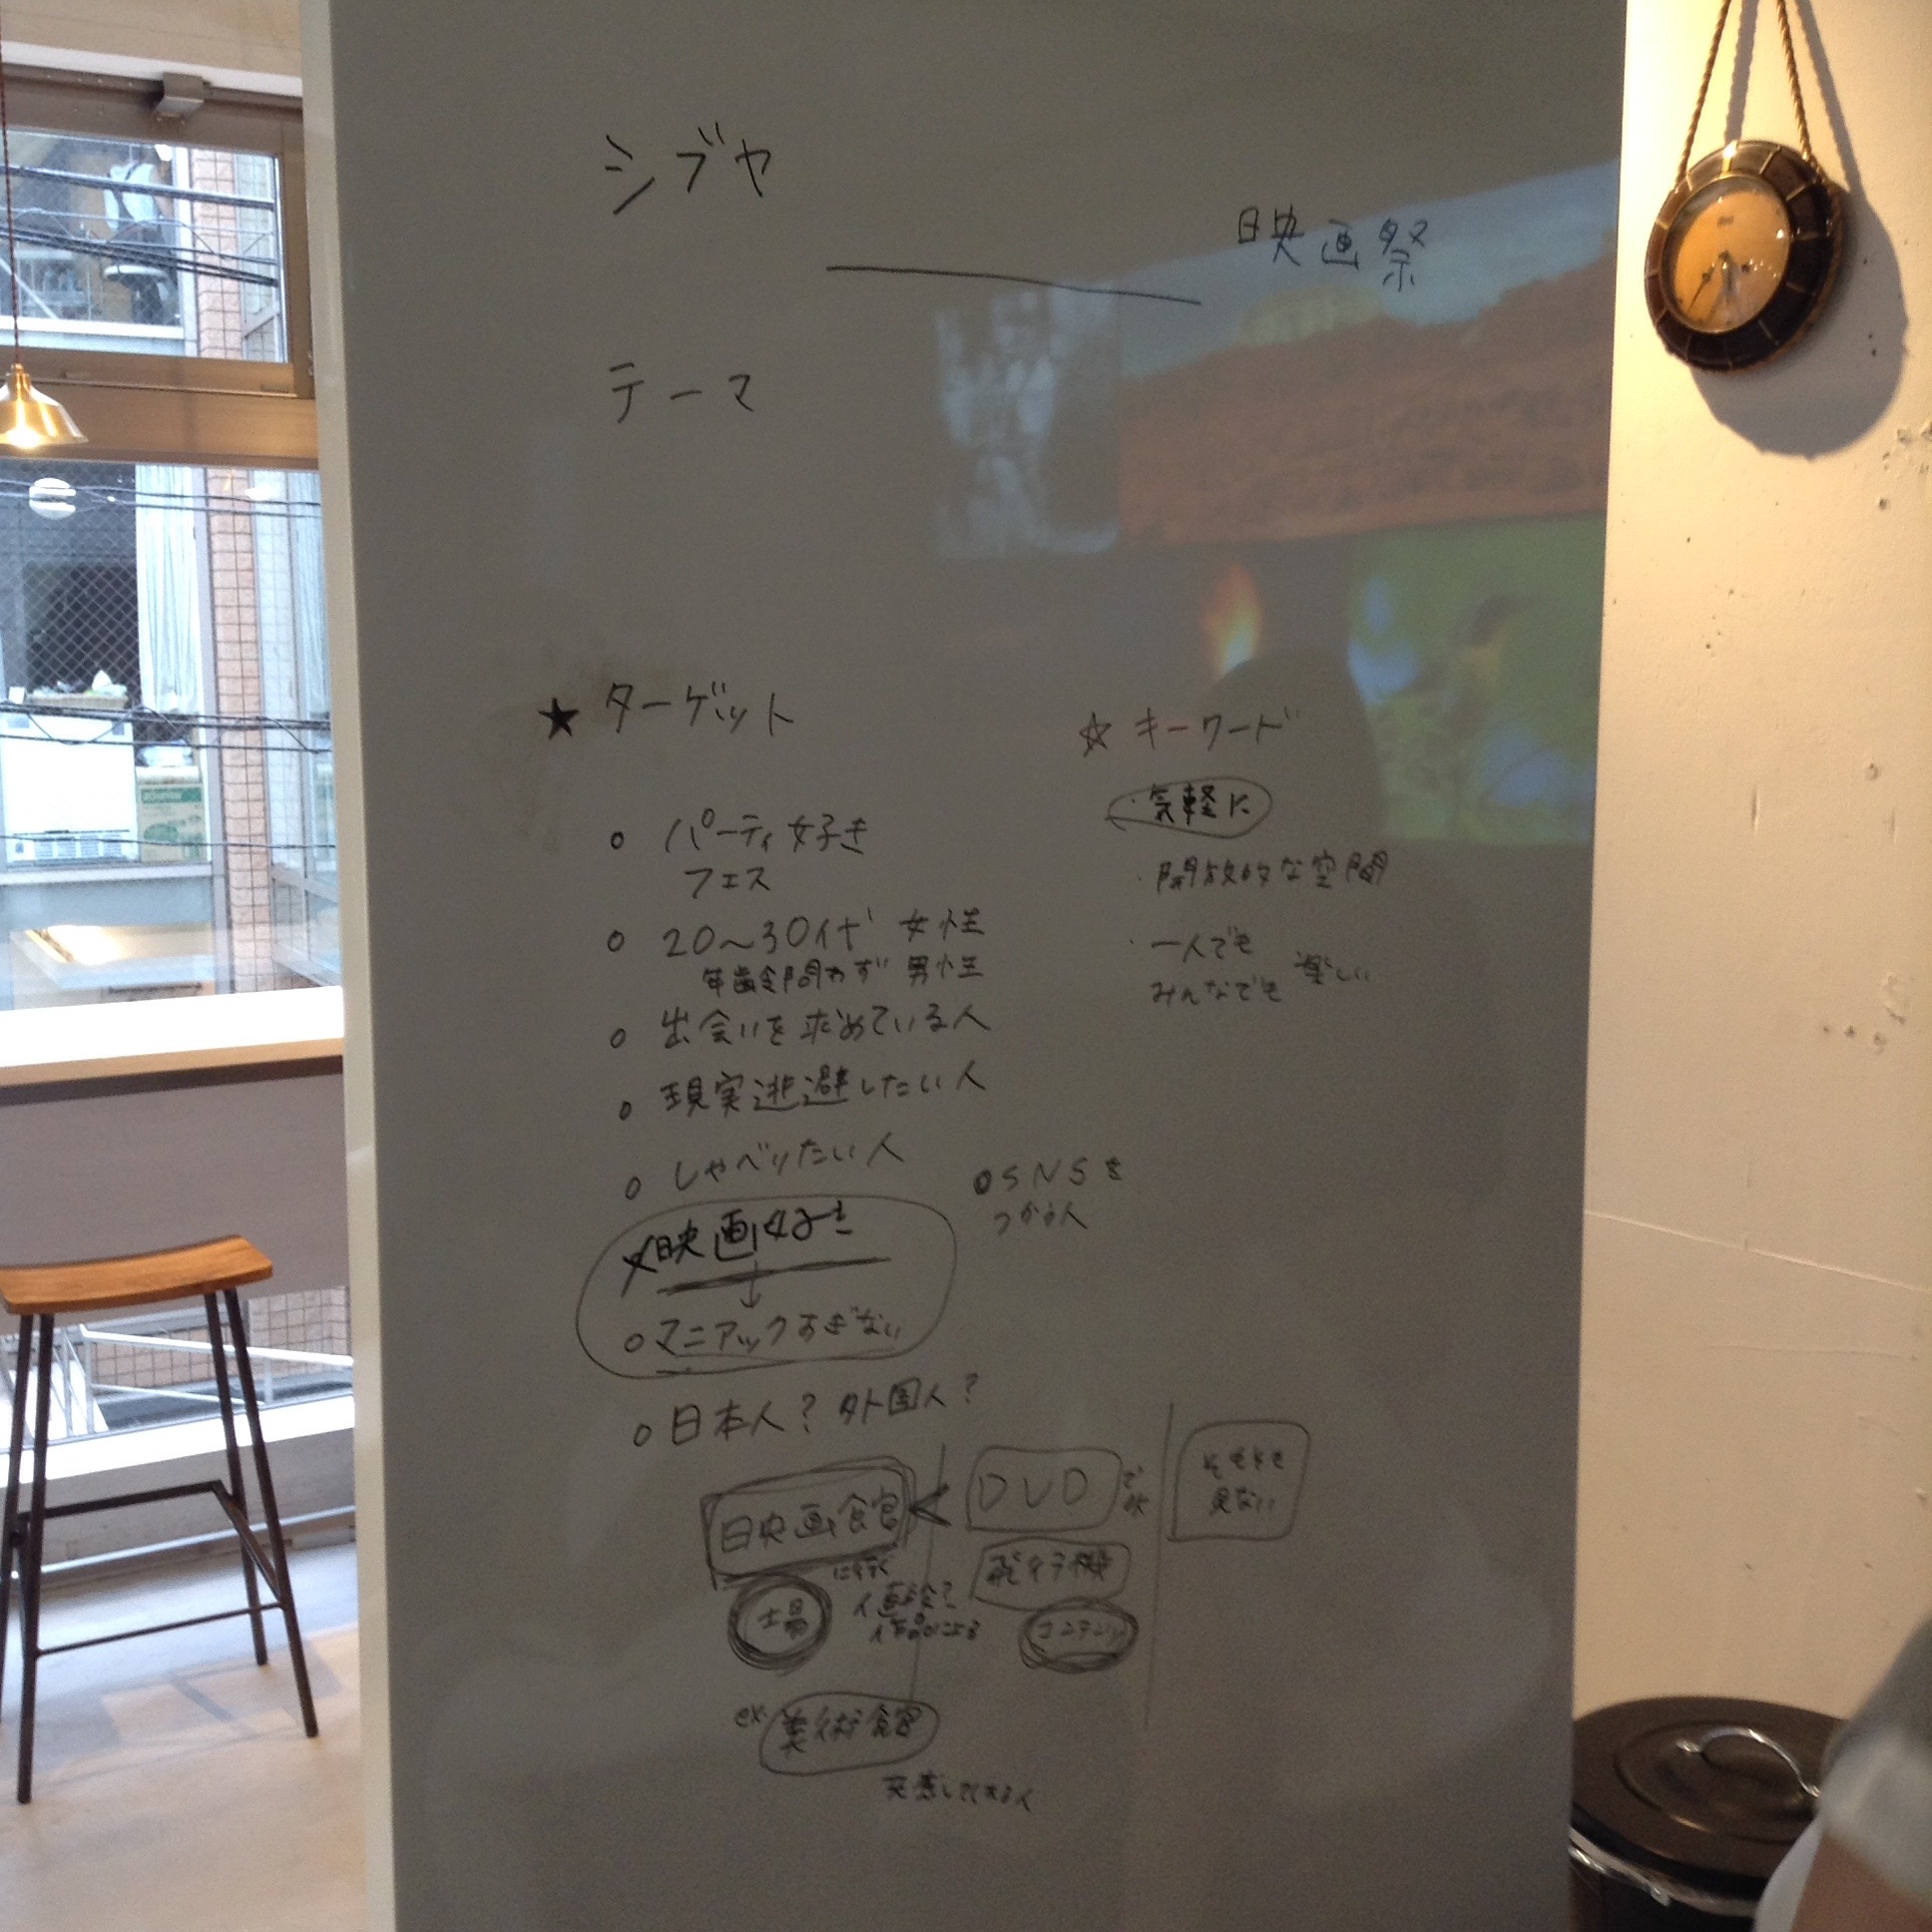 シブヤ
映画祭
テーマ
★ ターゲット
○ パーティ好き
フェス
○ 20〜30代 女性
年齢問わず 男性
○ 出会いを求めている人
○ 現実逃避したい人
○ しゃべりたい人
○ SNSを
つかう人
×映画好き
↓
○ マニアックすぎない
○ 日本人? 外国人?
☆ キーワード
・気軽に
・開放的な空間
・一人でも
みんなでも 楽しい
映画館
に行く
DVD
でOK
そもそも
見ない
飛行機
場
体験?
作品による
コンテンツ
ex. 美術館
共感してくれる人